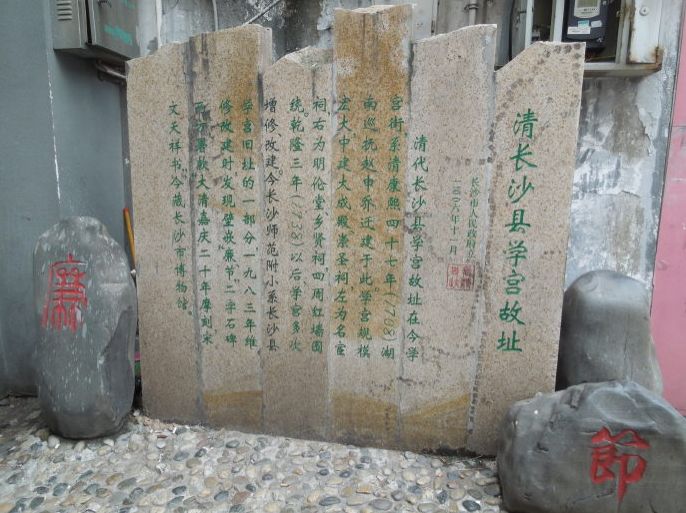 清长沙县学宫故址
长沙市人民政府
二〇〇六年十一月
清代长沙县学宫故址在今学
宫街系清康熙四十七年(1708)湖
南巡抚赵申乔迁建于此学宫规模
宏大,中建大成殿崇圣祠左为名宦
祠右为明伦堂、乡贤祠,四周红墙围
绕。乾隆三年(1738)以后学宫多次
增修改建。今长沙师范附小系长沙县
学宫旧址的一部分一九八三年维
修改建时发现壁嵌“廉节”二字石碑
方署款大清嘉庆二十年摩刻宋
文天祥书”今藏长沙市博物馆。
廉
節